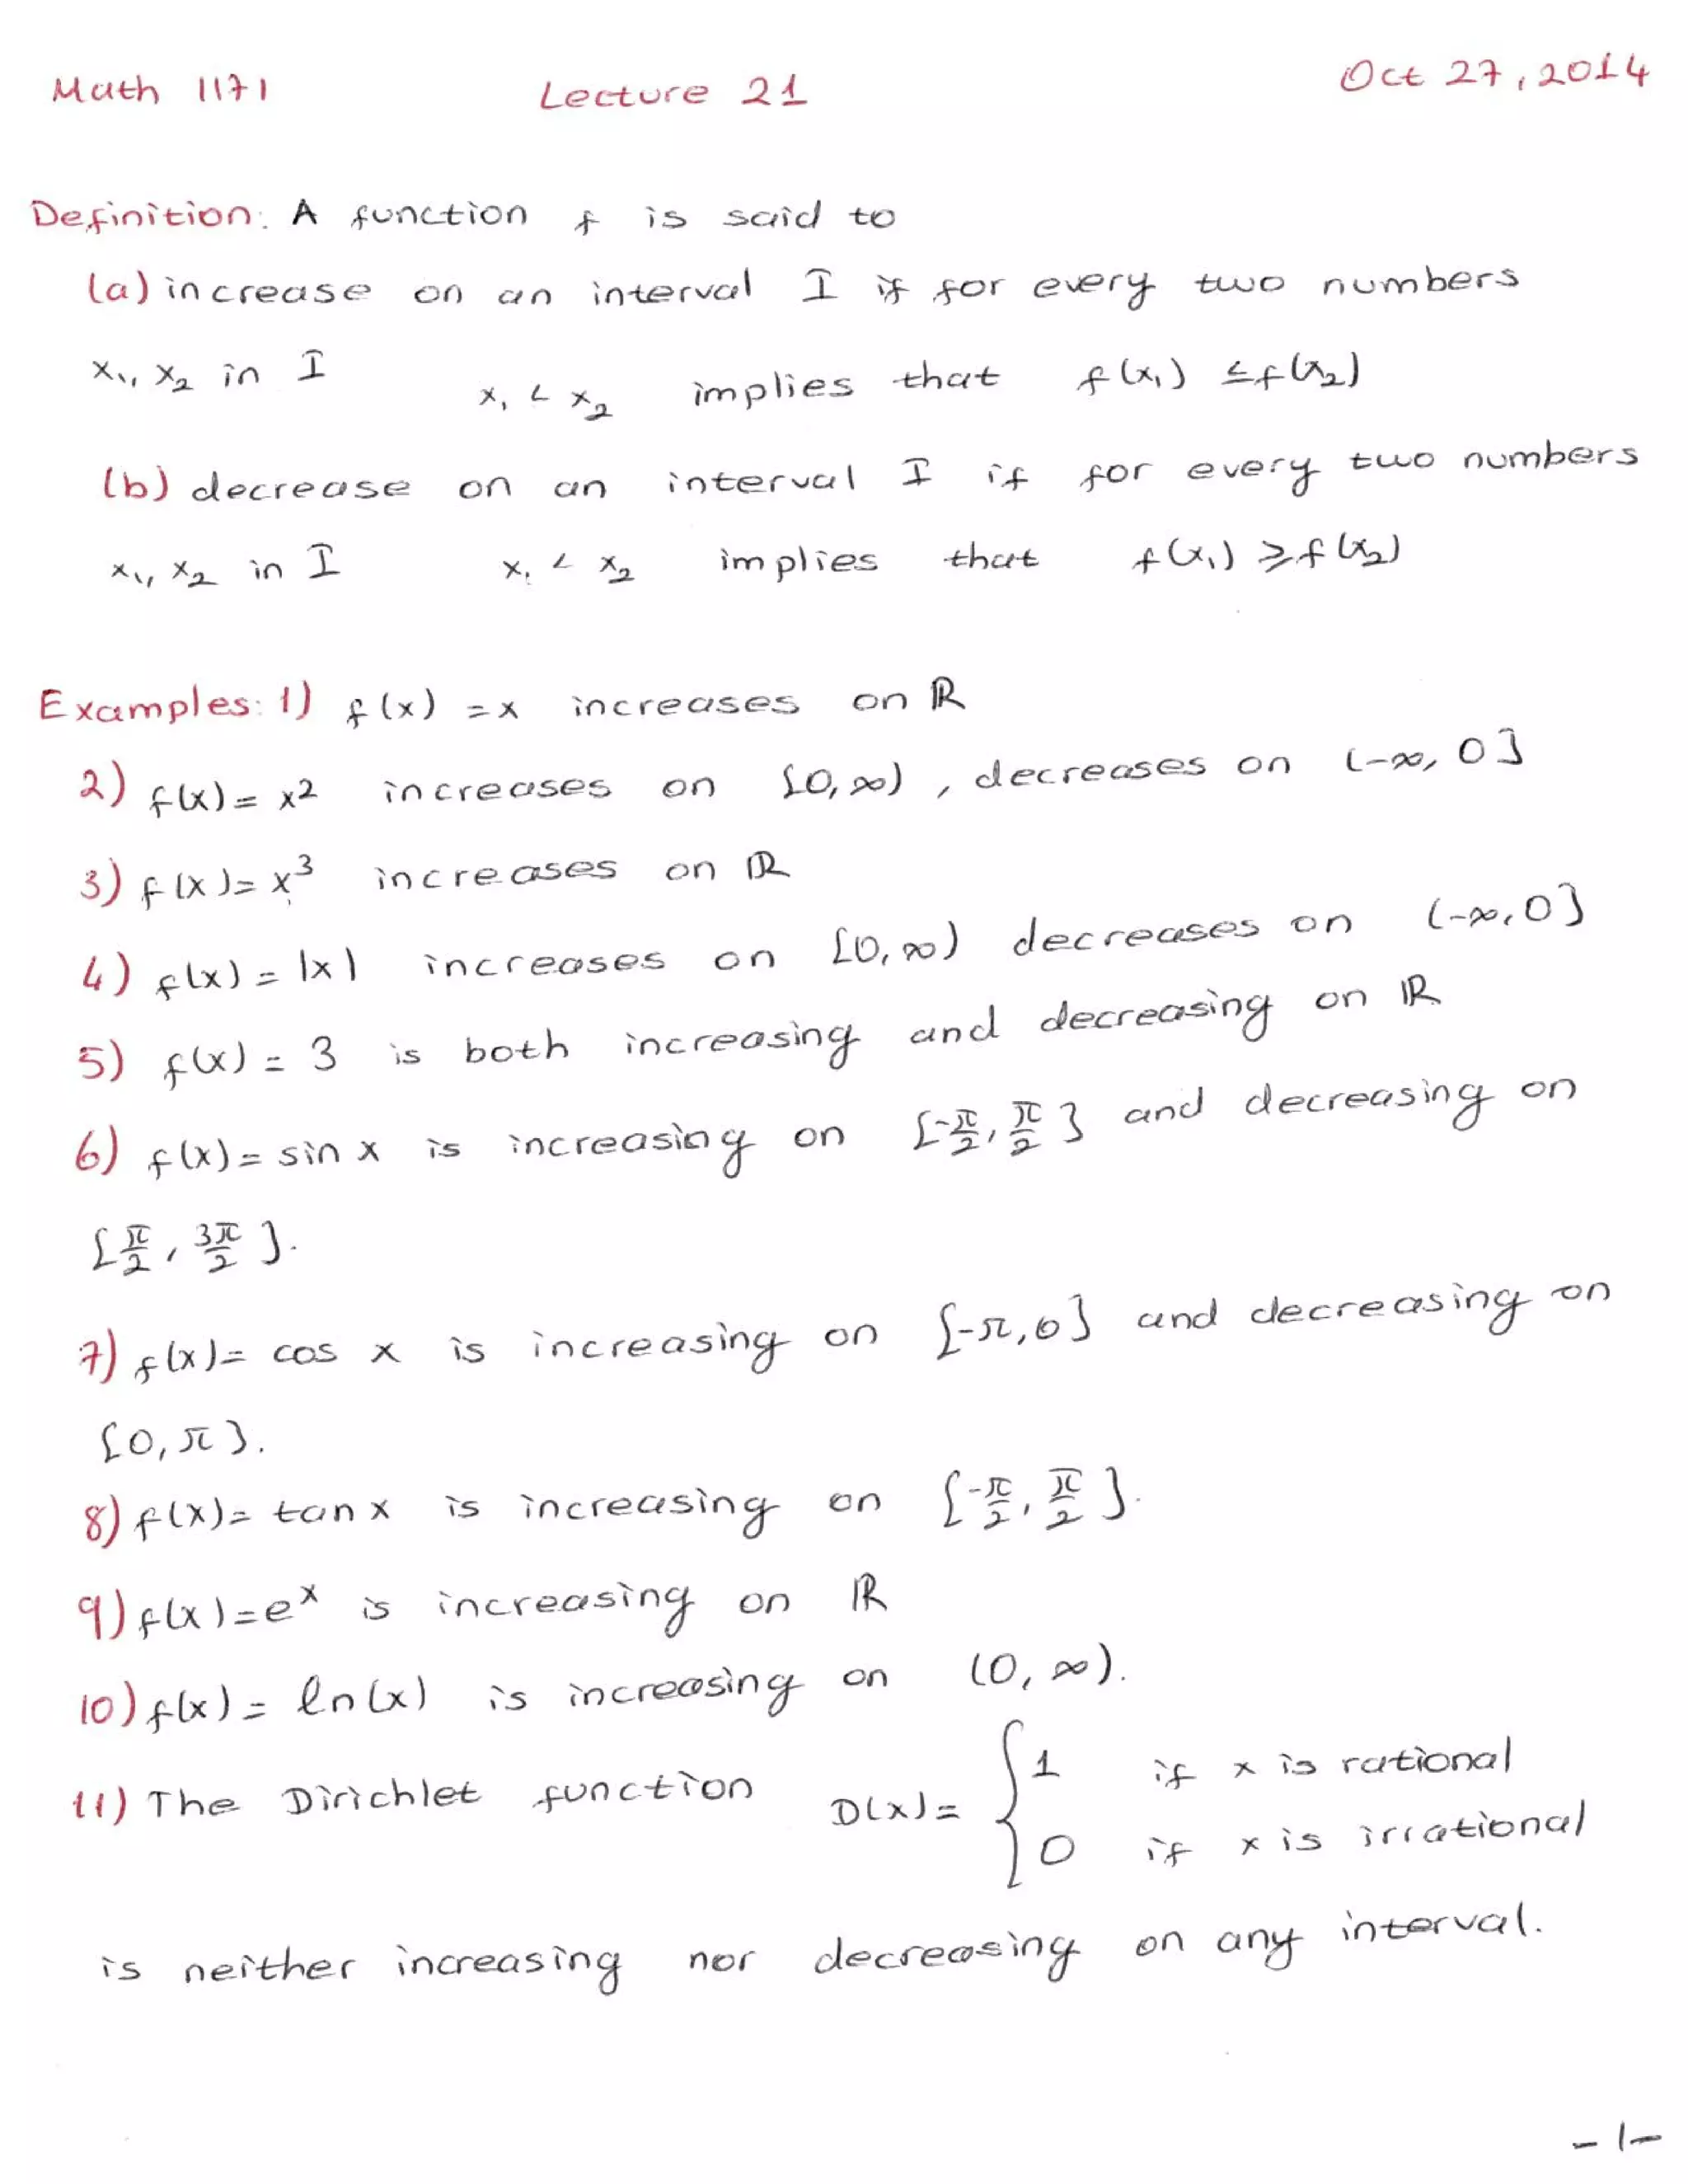 Math 1171 Lecture 21 Oct 27, 2014
Definition: A function f is said to
(a) increase on an interval I if for every two numbers
x₁, x₂ in I x₁ < x₂ implies that f(x₁) ≤ f(x₂)
(b) decrease on an interval I if for every two numbers
x₁, x₂ in I x₁ < x₂ implies that f(x₁) ≥ f(x₂)
Examples: 1) f(x) = x increases on ℝ
2) f(x) = x² increases on [0, ∞), decreases on (-∞, 0]
3) f(x) = x³ increases on ℝ
4) f(x) = |x| increases on [0, ∞) decreases on (-∞, 0]
5) f(x) = 3 is both increasing and decreasing on ℝ
6) f(x) = sin x is increasing on [-π/2, π/2] and decreasing on
[π/2, 3π/2].
7) f(x) = cos x is increasing on [-π, 0] and decreasing on
[0, π].
8) f(x) = tan x is increasing on [-π/2, π/2].
9) f(x) = eˣ is increasing on ℝ
10) f(x) = ln(x) is increasing on (0, ∞).
11) The Dirichlet function D(x) = { 1 if x is rational
0 if x is irrational
is neither increasing nor decreasing on any interval.
-1-